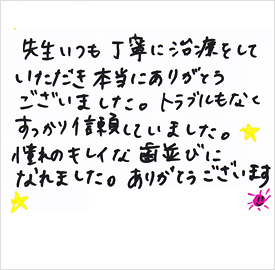 先生いつも丁寧に治療をして
いただき本当にありがとう
ございました。トラブルもなく
すっかり信頼していました。
憧れのキレイな歯並びに
なれました。ありがとうございます